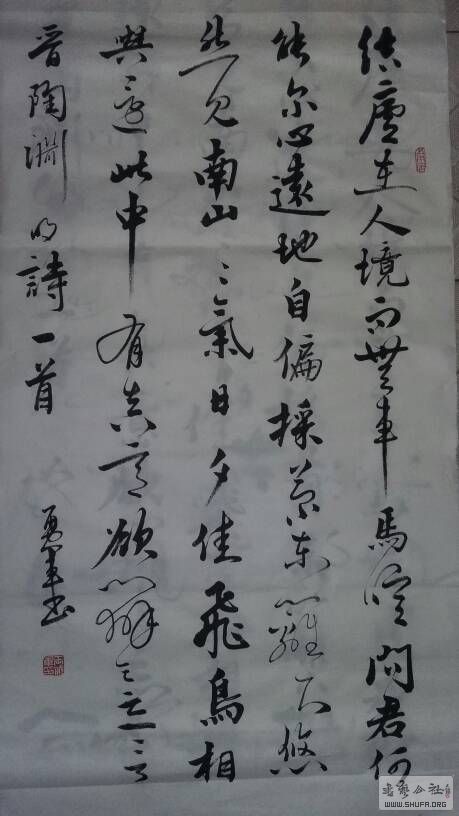 結廬在人境而無車馬喧問君何
能尔心遠地自偏採菊东籬下悠
然见南山々氣日夕佳飛鳥相
與還此中有真意欲辨已忘言
晋陶渊明詩一首
勇军书
书艺公社
WWW.SHUFA.ORG